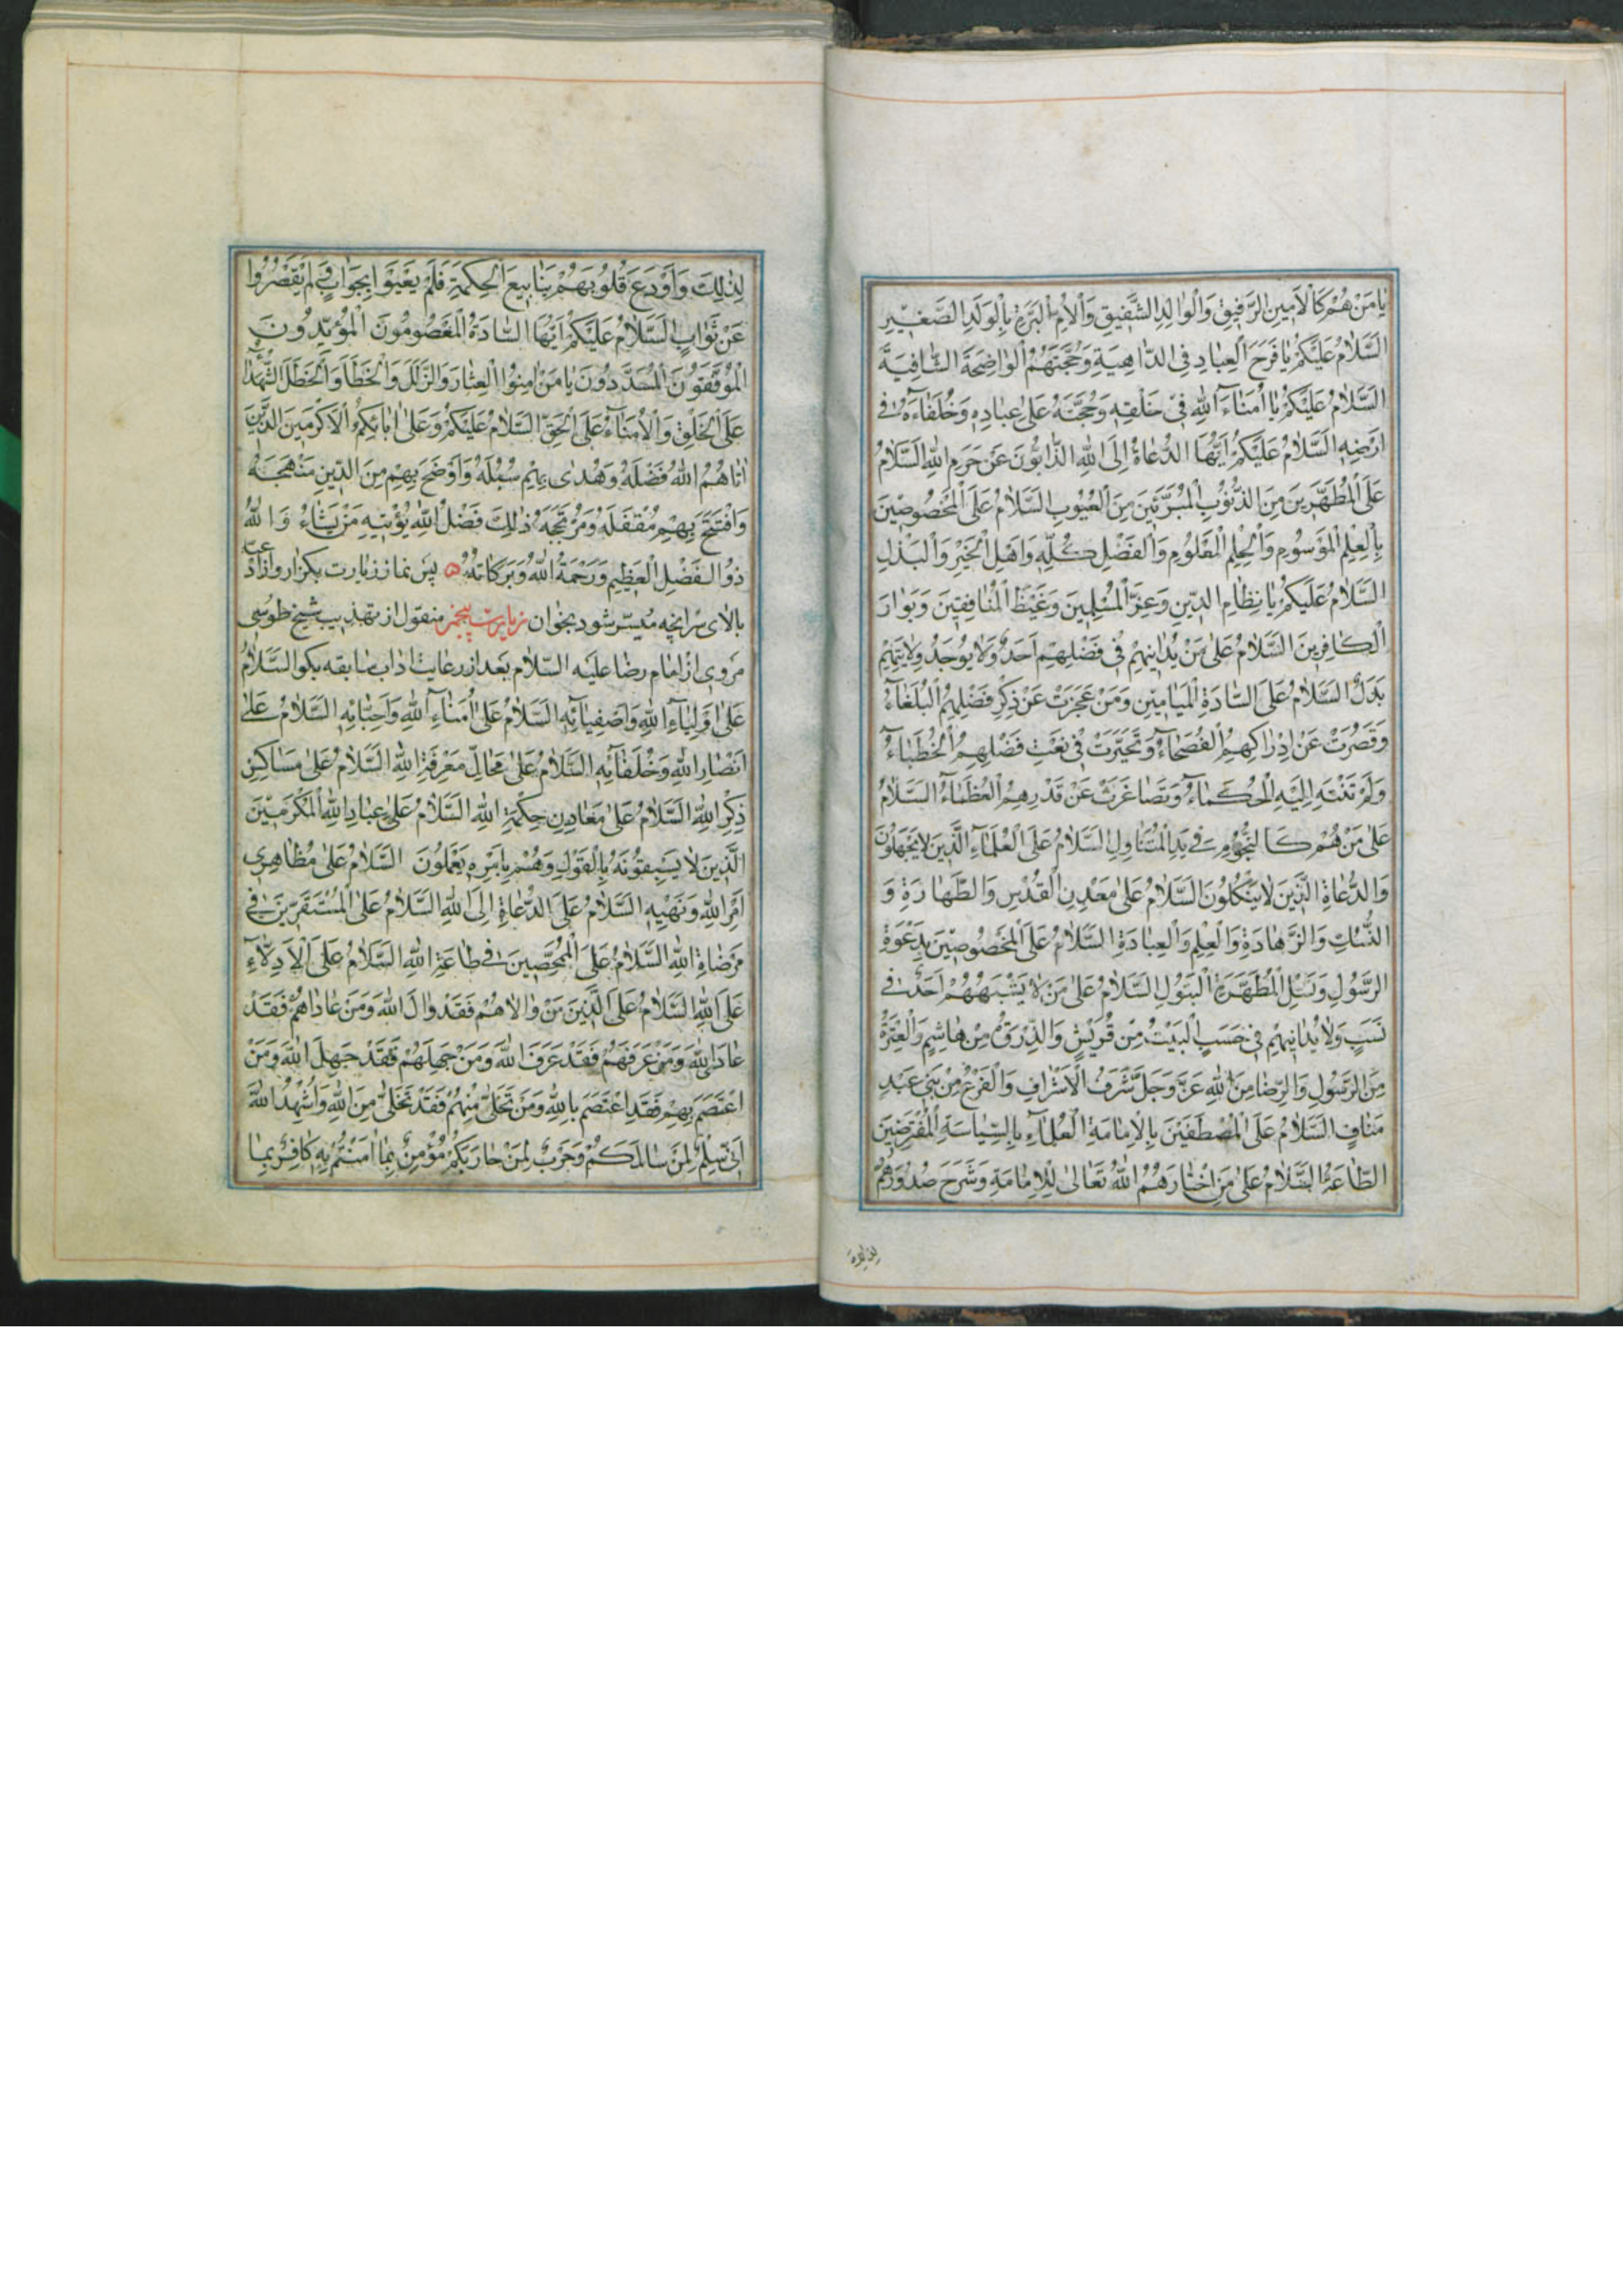 يٰا مَنْ هُمْ كَالْاَمينِ الرَّفيقِ وَالْوٰالِدِ الشَّفيقِ وَالْاُمِّ الْبَرَّةِ بِالْوَلَدِ الصَّغيرِ
اَلسَّلٰامُ عَلَيْكُمْ يٰا فَرَحَ الْعِبٰادِ فِى الدّٰاهِيَةِ وَحُجَّتَهُمُ الْوٰاضِحَةَ الشّٰافِيَةَ
اَلسَّلٰامُ عَلَيْكُمْ يٰا اُمَنٰاءَ اللهِ فى خَلْقِهِ وَحُجَّتَهُ عَلىٰ عِبٰادِهِ وَخُلَفٰاءَهُ فى
اَرْضِهِ اَلسَّلٰامُ عَلَيْكُمْ اَيُّهَا الدُّعٰاةُ اِلَى اللهِ الذّٰابُّونَ عَنْ حَرَمِ اللهِ اَلسَّلٰامُ
عَلَى الْمُطَهَّرينَ مِنَ الذُّنُوبِ الْمُبَرَّئينَ مِنَ الْعُيُوبِ اَلسَّلٰامُ عَلَى الْمَخْصُوصينَ
بِالْعِلْمِ الْمَوْسُومِ وَالْحِلْمِ الْمَعْلُومِ وَالْفَضْلِ كُلِّهِ وَاَهْلِ الْخَيْرِ وَالْبَذْلِ
اَلسَّلٰامُ عَلَيْكُمْ يٰا نِظٰامَ الدّينِ وَعِزَّ الْمُسْلِمينَ وَغَيْظَ الْمُنٰافِقينَ وَبَوٰارَ
الْكٰافِرينَ اَلسَّلٰامُ عَلىٰ مَنْ يُدٰانيهِمْ فى فَضْلِهِمْ اَحَدٌ وَلٰا يُوجَدُ وَلٰا
بَدَلٌ اَلسَّلٰامُ عَلَى السّٰادَةِ الْمَيٰامينِ وَمَنْ عَجَزَتْ عَنْ ذِكْرِ فَضْلِهِمُ الْبُلَغٰاءُ
وَقَصُرَتْ عَنْ اِدْرٰاكِهِمُ الْفُصَحٰاءُ وَتَحَيَّرَتْ فى نَعْتِ فَضْلِهِمُ الْخُطَبٰاءُ
وَلَمْ تَنْتَهِ اِلَيْهِ الْحُكَمٰاءُ وَتَصٰاغَرَتْ عَنْ قَدْرِهِمُ الْعُظَمٰاءُ اَلسَّلٰامُ
عَلىٰ مَنْ هُمْ كَالنُّجُومِ فى يَدِ الْمُتَنٰاوِلِ اَلسَّلٰامُ عَلَى الْعُلَمٰاءِ الَّذينَ لٰا يَجْهَلُونَ
وَالدُّعٰاةِ الَّذينَ لٰا يَنْكُلُونَ اَلسَّلٰامُ عَلىٰ مَعْدِنِ الْقُدْسِ وَالطَّهٰارَةِ وَ
النُّسُكِ وَالزَّهٰادَةِ وَالْعِلْمِ وَالْعِبٰادَةِ اَلسَّلٰامُ عَلَى الْمَخْصُوصينَ بِدَعْوَةِ
الرَّسُولِ وَنَسْلِ الْمُطَهَّرَةِ الْبَتُولِ اَلسَّلٰامُ عَلىٰ مَنْ لٰا يَشْبَهُهُمْ اَحَدٌ فى
نَسَبٍ وَلٰا يُدٰانيهِمْ فى حَسَبٍ الْبَيْتُ مِنْ قُرَيْشٍ وَالذِّرْوَةُ مِنْ هٰاشِمٍ وَالْعِتْرَةُ
مِنَ الرَّسُولِ وَالرِّضٰا مِنَ اللهِ عَزَّ وَجَلَّ شَرَفُ الْاَشْرٰافِ وَالْفَرْعُ مِنْ بَنى عَبْدِ
مَنٰافٍ اَلسَّلٰامُ عَلَى الْمُصْطَفَيْنَ بِالْاِمٰامَةِ الْعُلَمٰاءِ بِالسِّيٰاسَةِ الْمُفْتَرَضينَ
الطّٰاعَةِ اَلسَّلٰامُ عَلىٰ مَنِ اخْتٰارَهُمُ اللهُ تَعٰالىٰ لِلْاِمٰامَةِ وَشَرَحَ صُدُورَهُمْ
لِذٰلِكَ وَاَوْدَعَ قُلُوبَهُمْ يَنٰابيعَ الْحِكْمَةِ فَلَمْ يَعْيَوْا بِجَوٰابٍ وَلَمْ يَقْصُرُوا
عَنْ ثَوٰابٍ اَلسَّلٰامُ عَلَيْكُمْ اَيُّهَا السّٰادَةُ الْمَعْصُومُونَ الْمُؤَيَّدُونَ
الْمُوَفَّقُونَ الْمُسَدَّدُونَ يٰا مَنْ اَمِنُوا الْعِثٰارَ وَالزَّلَلَ وَالْخَطَأَ وَالْخَطَلَ الشُّهَدٰاءُ
عَلَى الْخَلْقِ وَالْاُمَنٰاءُ عَلَى الْحَقِّ اَلسَّلٰامُ عَلَيْكُمْ وَعَلىٰ اٰبٰائِكُمُ الْاَكْرَمينَ الَّذينَ
اٰتٰاهُمُ اللهُ فَضْلَهُ وَهَدىٰ بِهِمْ سُبُلَهُ وَاَوْضَحَ بِهِمْ مِنَ الدّينِ مَنْهَجَهُ
وَافْتَتَحَ بِهِمْ مُقْفَلَهُ وَمُرْتَجَهُ ذٰلِكَ فَضْلُ اللهِ يُؤْتيهِ مَنْ يَشٰاءُ وَاللهُ
ذُو الْفَضْلِ الْعَظيمِ وَرَحْمَةُ اللهِ وَبَرَكٰاتُهُ پس نماز زيارت بكزار و از ادعيه
بالاى سر انچه ميسّر شود بخوان زيارت پنجم منقول از تهذيب شيخ طوسى
مروى از امام رضا عليه السّلام بعد از رعايت اداب سابقه بكو السَّلٰامُ
عَلىٰ اَوْلِيٰاءِ اللهِ وَاَصْفِيٰائِهِ اَلسَّلٰامُ عَلىٰ اُمَنٰاءِ اللهِ وَاَحِبّٰائِهِ اَلسَّلٰامُ عَلىٰ
اَنْصٰارِ اللهِ وَخُلَفٰائِهِ اَلسَّلٰامُ عَلىٰ مَحٰالِّ مَعْرِفَةِ اللهِ اَلسَّلٰامُ عَلىٰ مَسٰاكِنِ
ذِكْرِ اللهِ اَلسَّلٰامُ عَلىٰ مَعٰادِنِ حِكْمَةِ اللهِ اَلسَّلٰامُ عَلىٰ عِبٰادِ اللهِ الْمُكْرَمينَ
الَّذينَ لٰا يَسْبِقُونَهُ بِالْقَوْلِ وَهُمْ بِاَمْرِهِ يَعْمَلُونَ اَلسَّلٰامُ عَلىٰ مُظٰاهِرى
اَمْرِ اللهِ وَنَهْيِهِ اَلسَّلٰامُ عَلَى الدُّعٰاةِ اِلَى اللهِ اَلسَّلٰامُ عَلَى الْمُسْتَقَرّينَ فى
مَرْضٰاةِ اللهِ اَلسَّلٰامُ عَلَى الْمُمَحَّصينَ فى طٰاعَةِ اللهِ اَلسَّلٰامُ عَلَى الْاَدِلّٰاءِ
عَلَى اللهِ اَلسَّلٰامُ عَلَى الَّذينَ مَنْ وٰالٰاهُمْ فَقَدْ وٰالَى اللهَ وَمَنْ عٰادٰاهُمْ فَقَدْ
عٰادَى اللهَ وَمَنْ عَرَفَهُمْ فَقَدْ عَرَفَ اللهَ وَمَنْ جَهِلَهُمْ فَقَدْ جَهِلَ اللهَ وَمَنْ
اعْتَصَمَ بِهِمْ فَقَدِ اعْتَصَمَ بِاللهِ وَمَنْ تَخَلّىٰ مِنْهُمْ فَقَدْ تَخَلّىٰ مِنَ اللهِ وَاُشْهِدُ اللهَ
اَنّى سِلْمٌ لِمَنْ سٰالَمَكُمْ وَحَرْبٌ لِمَنْ حٰارَبَكُمْ مُؤْمِنٌ بِمٰا اٰمَنْتُمْ بِهِ كٰافِرٌ بِمٰا